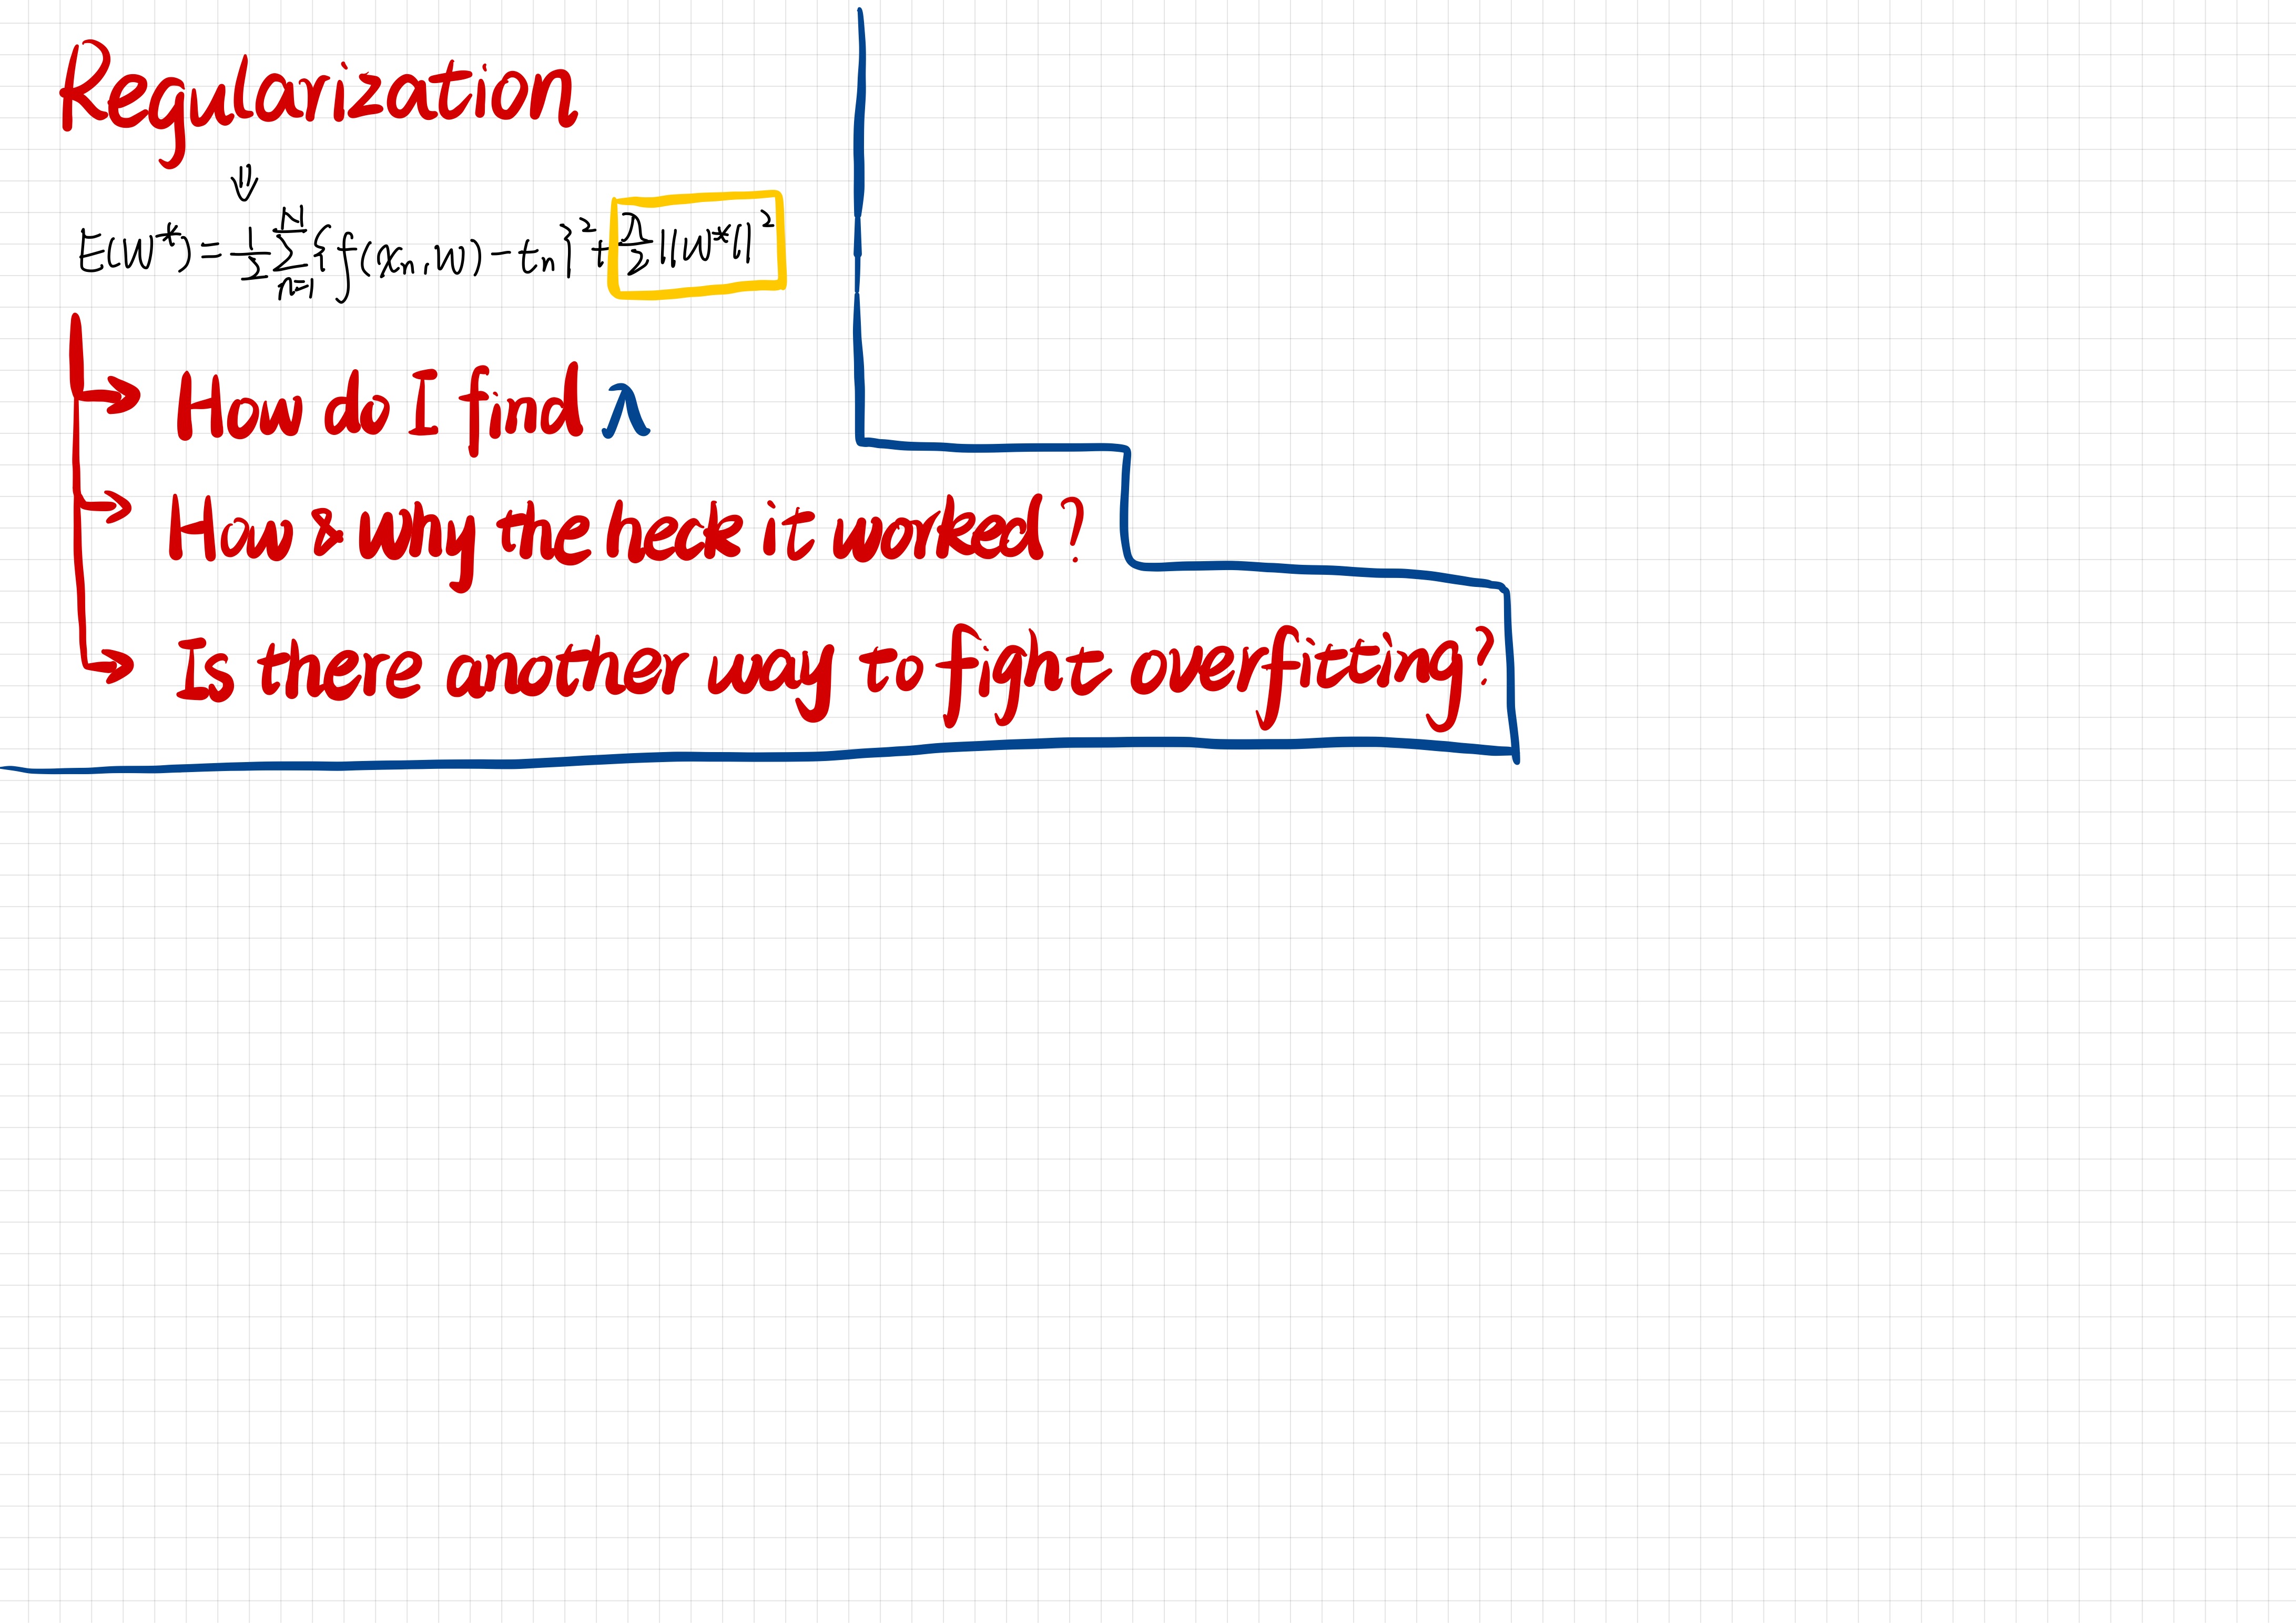 Regularization
⇓
E(W*) = 1/2 ∑_{n=1}^{N} {f(x_n, w) − t_n}² + λ/2 ||W*||²
How do I find λ
How & why the heck it worked?
Is there another way to fight overfitting?